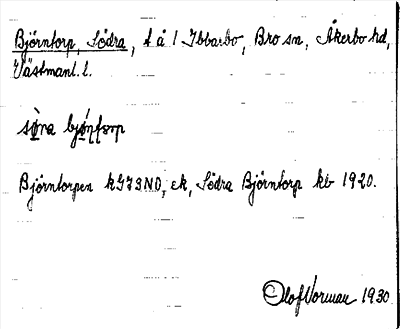 Björntorp, Södra, t å 1 Ibbarbo, Bro sn, Åkerbo hd,
Västmanl. l.
Björntorpen kG73NO, ek, Södra Björntorp kb 1920.
Olof Vorman 1930